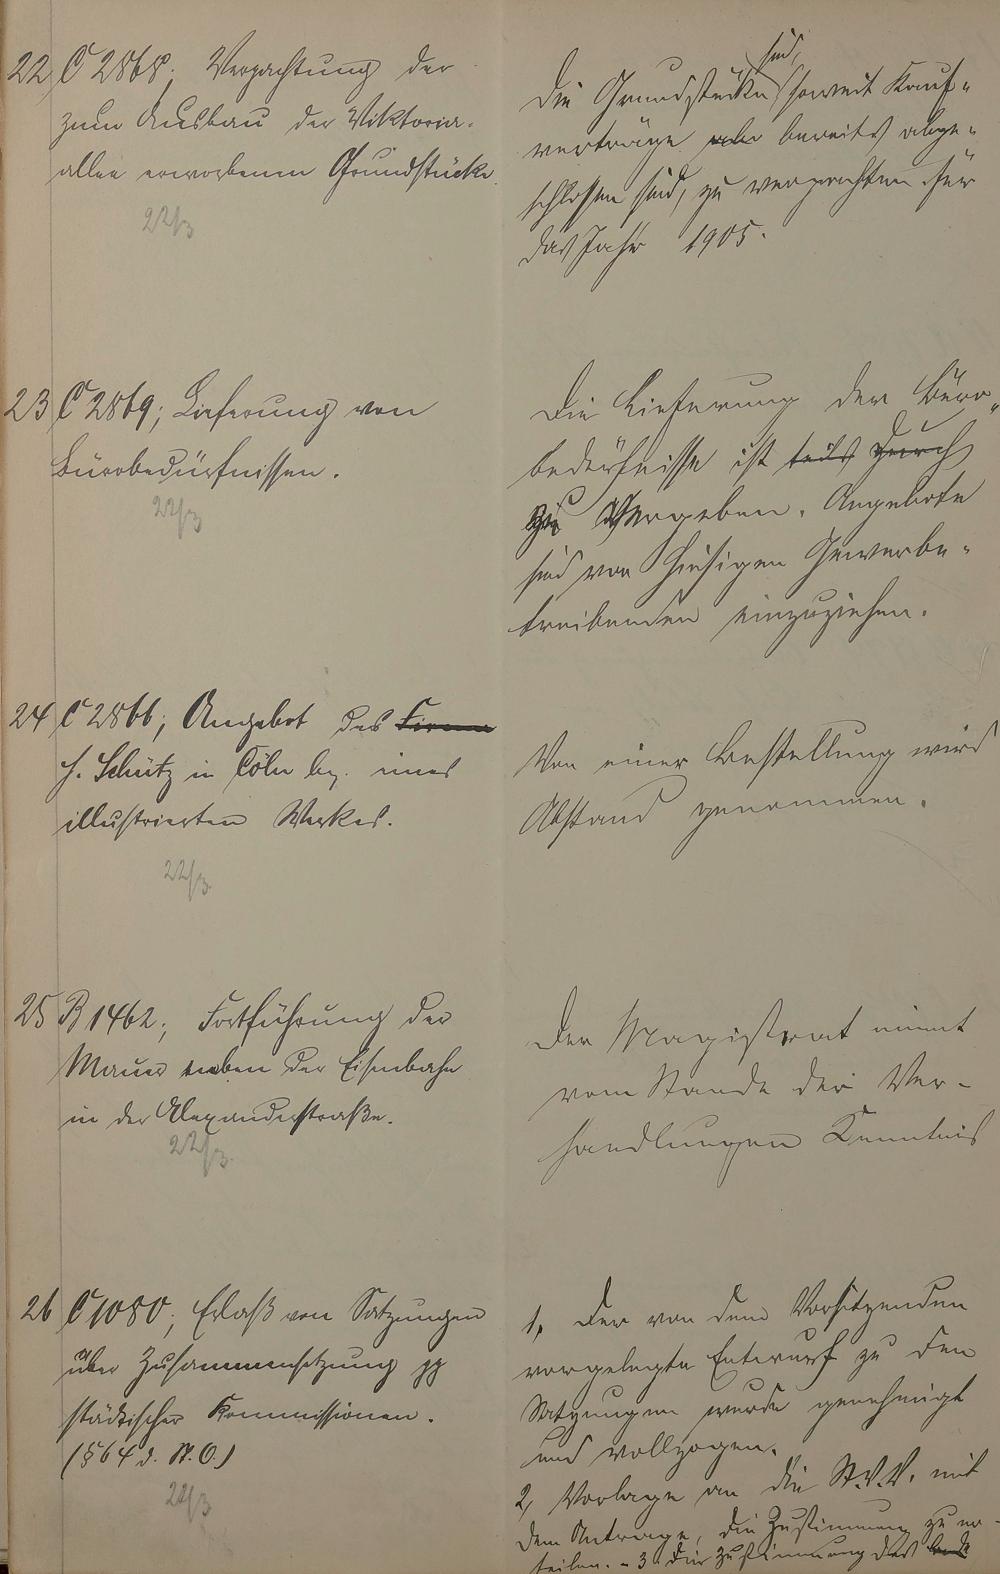 22 C 2868; Verpachtung der
zum Ausbau der Viktoria-
allee erworbenen Grundstücke.
22/3
sind,
Die Grundstücke soweit Kauf-
verträge bereits abge-
schlossen sind, zu verpachten für
das Jahr 1905.
23 C 2869; Lieferung von
Bürobedürfnissen.
22/3
Die Lieferung der Büro-
bedürfnisse ist teils durch
zu vergeben. Angebote
sind von hiesigen Gewerbe-
treibenden einzuziehen.
24 C 2866; Angebot des Firma
H. Schütz in Cöln bz. eines
illustrierten Werkes.
22/3
Von einer Bestellung wird
Abstand genommen.
25 B 1462; Fortführung der
Mauer neben der Eisenbahn
in der Alexanderstraße.
22/3
Der Magistrat nimmt
vom Stande der Ver-
handlungen Kenntnis
26 C 1080; Erlaß von Satzungen
über Zusammensetzung pp
städtischer Kommissionen.
(§ 64 d. St. O.)
22/3
1, Der von dem Vorsitzenden
vorgelegte Entwurf zu den
Satzungen wurde genehmigt
und vollzogen.
2, Vorlage an die St.V.V. mit
dem Antrage, die Zustimmung zu er-
teilen. - 3. Die Zustimmung des